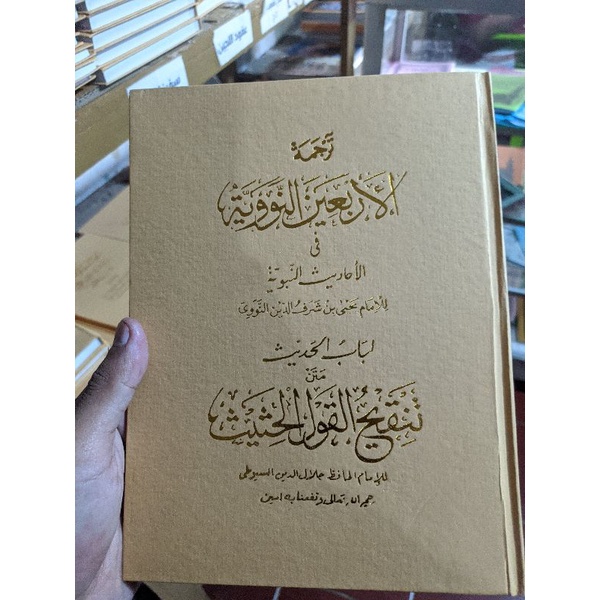 عقود اللجين
ترجمة
الأَرْبَعِيْنَ النَّوَوِيَّة
في
الأحاديث النبوية
للإمام يحيى بن شرف الدين النووي
لباب الحديث
متن
تَنْقِيْحُ القَوْلِ الحَثِيْثِ
للإمام الحافظ جلال الدين السيوطى
رحمه الله تعالى ونفعنا به امين